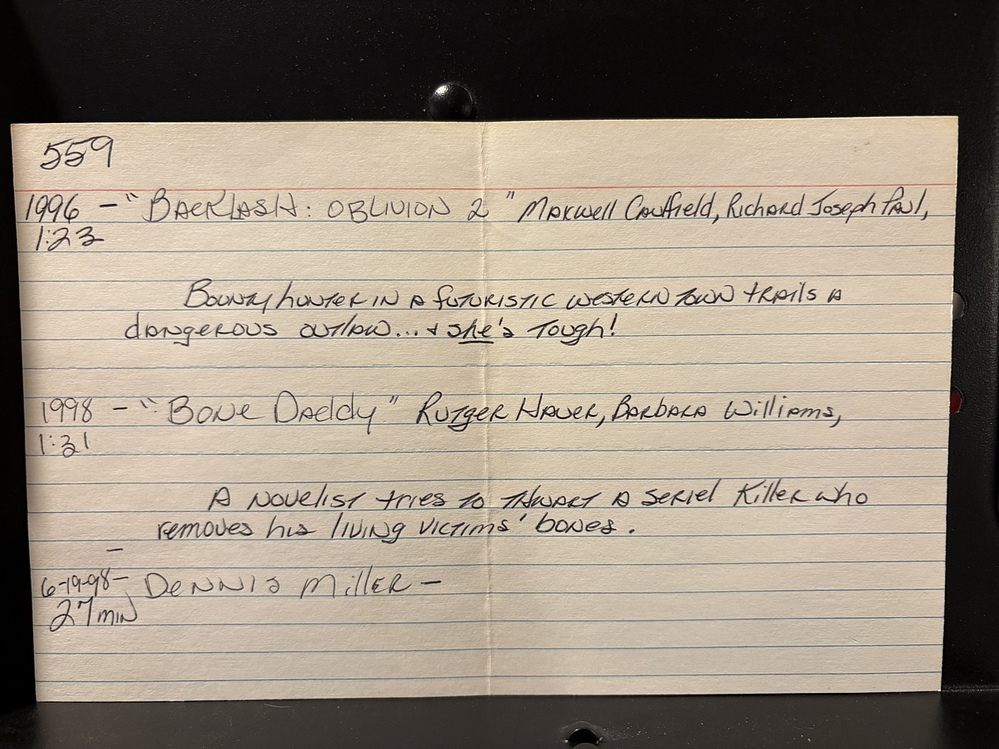 559
1996 - "Backlash: Oblivion 2" Maxwell Caulfield, Richard Joseph Paul,
1:23
Bounty hunter in a futuristic western town trails a
dangerous outlaw... & she's tough!
1998 - "Bone Daddy" Rutger Hauer, Barbara Williams,
1:31
A novelist tries to thwart a seriel killer who
removes his living victims' bones.
6-19-98- Dennis Miller -
27 min